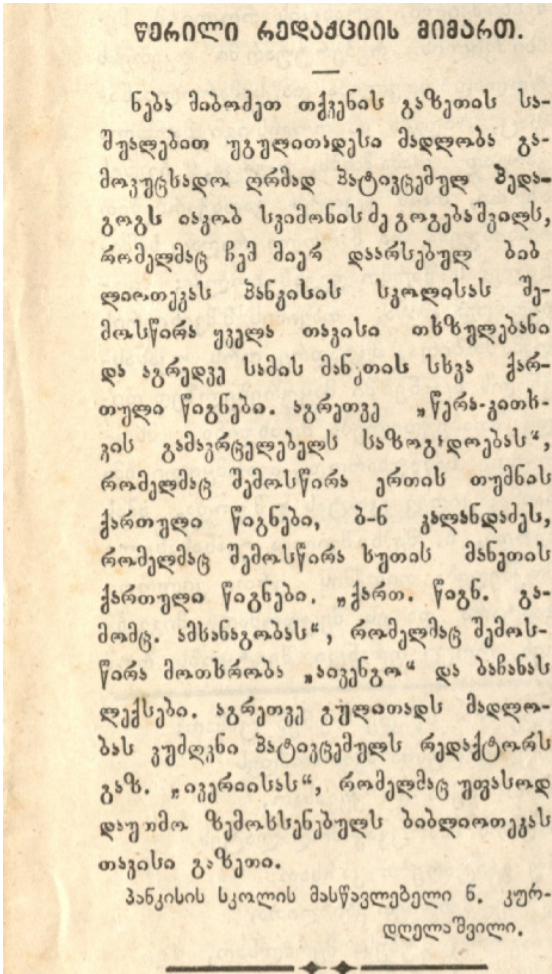 წერილი რედაქციის მიმართ.
ნება მიბოძეთ თქვენის გაზეთის სა-
შუალებით უგულითადესი მადლობა გა-
მოვუცხადო ღრმად პატივცემულ პედა-
გოგს იაკობ სვიმონის ძე გოგებაშვილს,
რომელმაც ჩემ მიერ დაარსებულ ბიბ
ლიოთეკას პანკისის სკოლისას შე-
მოსწირა ყველა თავისი თხზულებანი
და აგრედვე სამის მანეთის სხვა ქარ-
თული წიგნები. აგრეთვე „წერა-კითხ-
ვის გამავრცელებელს საზოგადოებას“,
რომელმაც შემოსწირა ერთის თუმნის
ქართული წიგნები, ბ-ნ კალანდაძეს,
რომელმაც შემოსწირა ხუთის მანეთის
ქართული წიგნები. „ქართ. წიგნ. გა-
მომც. ამხანაგობას“, რომელმაც შემოს-
წირა მოთხრობა „აივენგო“ და ბაჩანას
ლექსები. აგრეთვე გულითადს მადლო-
ბას ვუძღვნი პატივცემულს რედაქტორს
გაზ. „ივერიისას“, რომელმაც უფასოდ
დაუთმო ზემოხსენებულს ბიბლიოთეკას
თავისი გაზეთი.
პანკისის სკოლის მასწავლებელი ნ. ქურ-
დღელაშვილი.